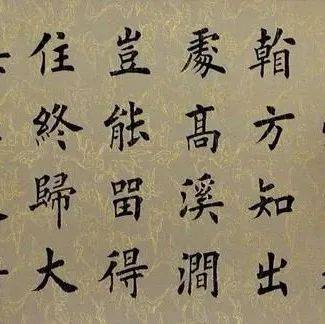 看方知出
處高溪澗
豈能留得
住終歸大